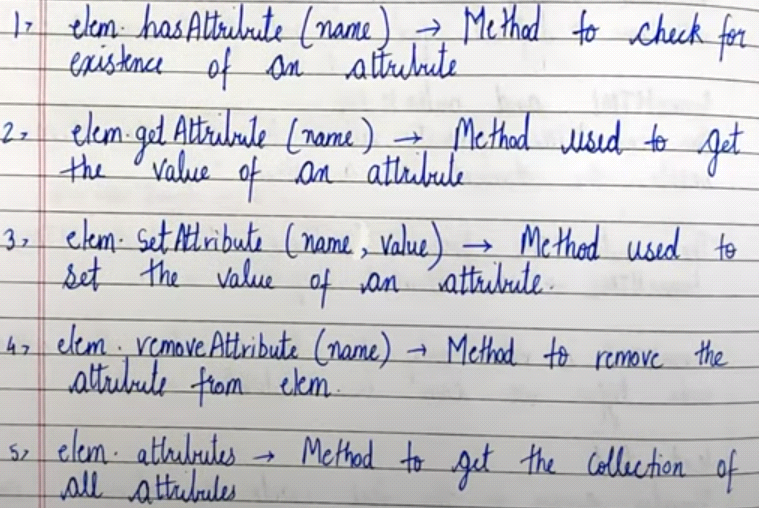 1, elem. hasAttribute (name) → Method to check for
existence of an attribute
2, elem. getAttribute (name) → Method used to get
the value of an attribute
3, elem. setAttribute (name, value) → Method used to
set the value of an attribute.
4, elem. removeAttribute (name) → Method to remove the
attribute from elem.
5, elem. attributes → Method to get the collection of
all attributes